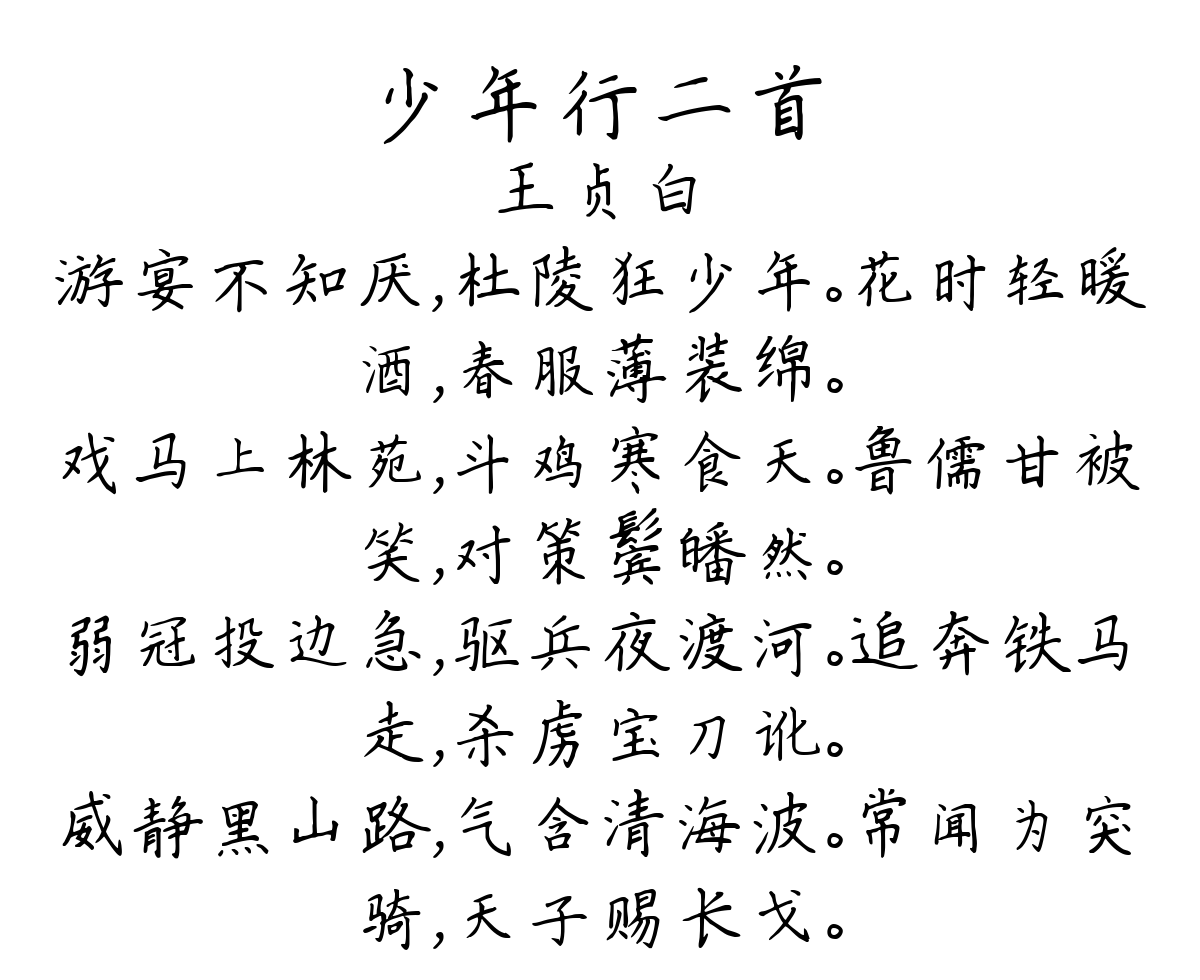 少年行二首
王贞白
游宴不知厌,杜陵狂少年。花时轻暖
酒,春服薄装绵。
戏马上林苑,斗鸡寒食天。鲁儒甘被
笑,对策鬓皤然。
弱冠投边急,驱兵夜渡河。追奔铁马
走,杀虏宝刀讹。
威静黑山路,气含清海波。常闻为突
骑,天子赐长戈。